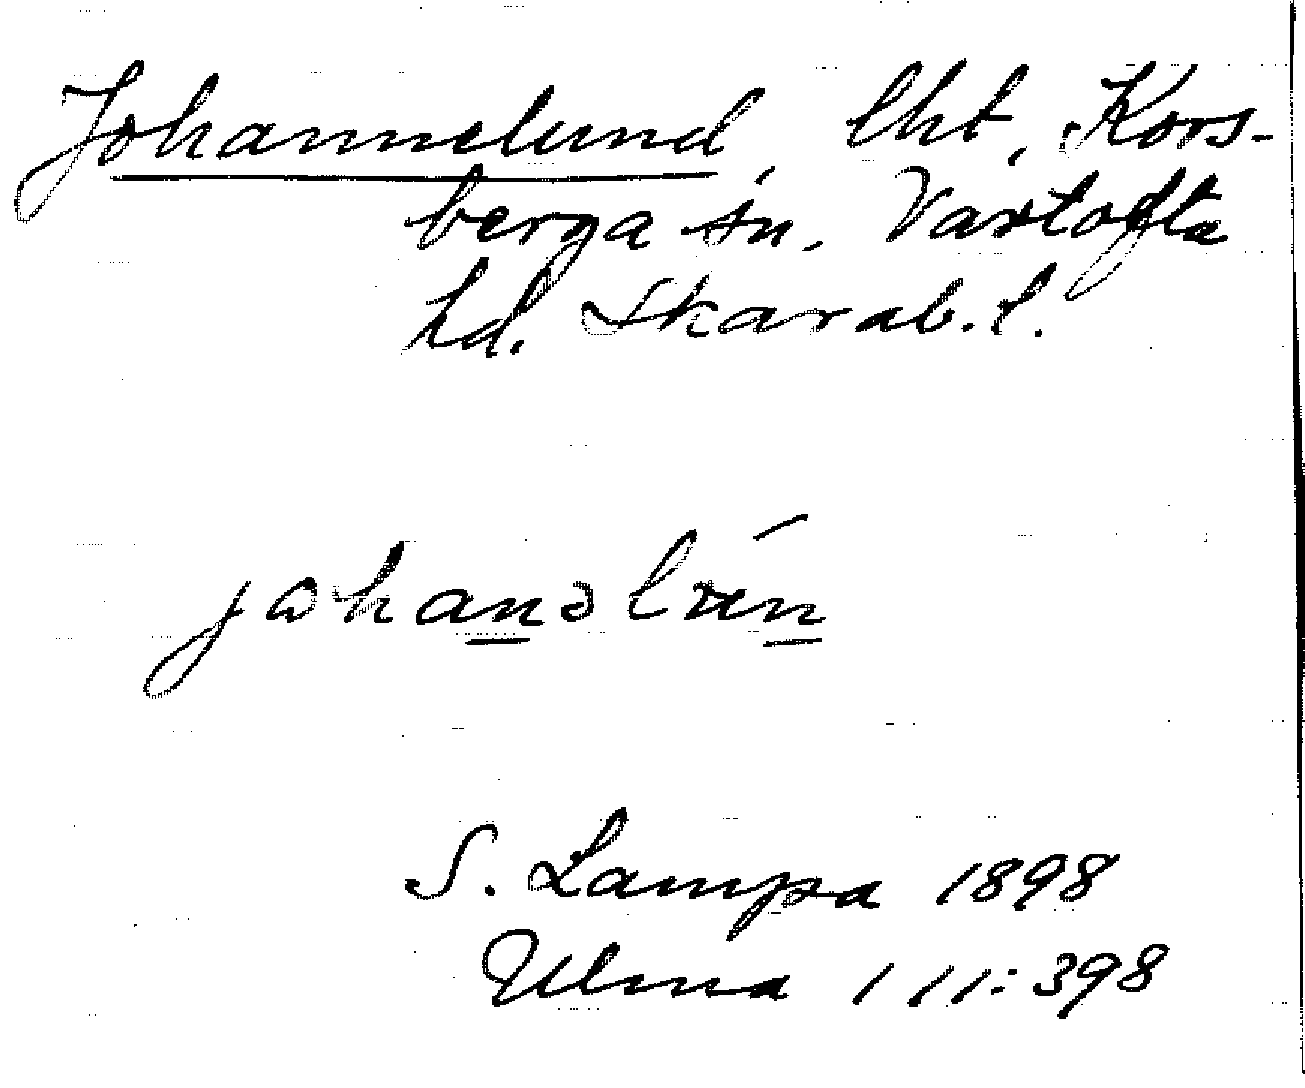 Johannelund, lht, Kors-
berga sn. Vartofta
hd. Skarab. l.
johanəlún
S. Lampa 1898
Ulma 111:398